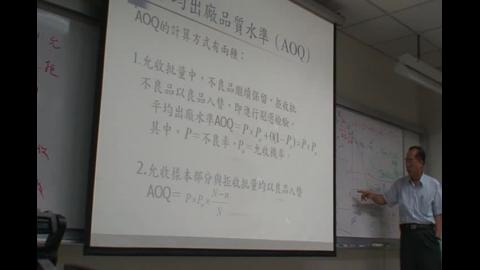 均出廠品質水準(AOQ)
AOQ的計算方式有兩種:
1.允收批量中,不良品繼續保留,拒收批
不良品以良品入替,即進行剔選檢驗。
平均出廠水準AOQ=P×Pₐ+0(1-Pₐ)=P×Pₐ
其中,P=不良率,Pₐ=允收機率。
2.允收樣本部分與拒收批量均以良品入替
AOQ=P×Pₐ×(N-n)/N